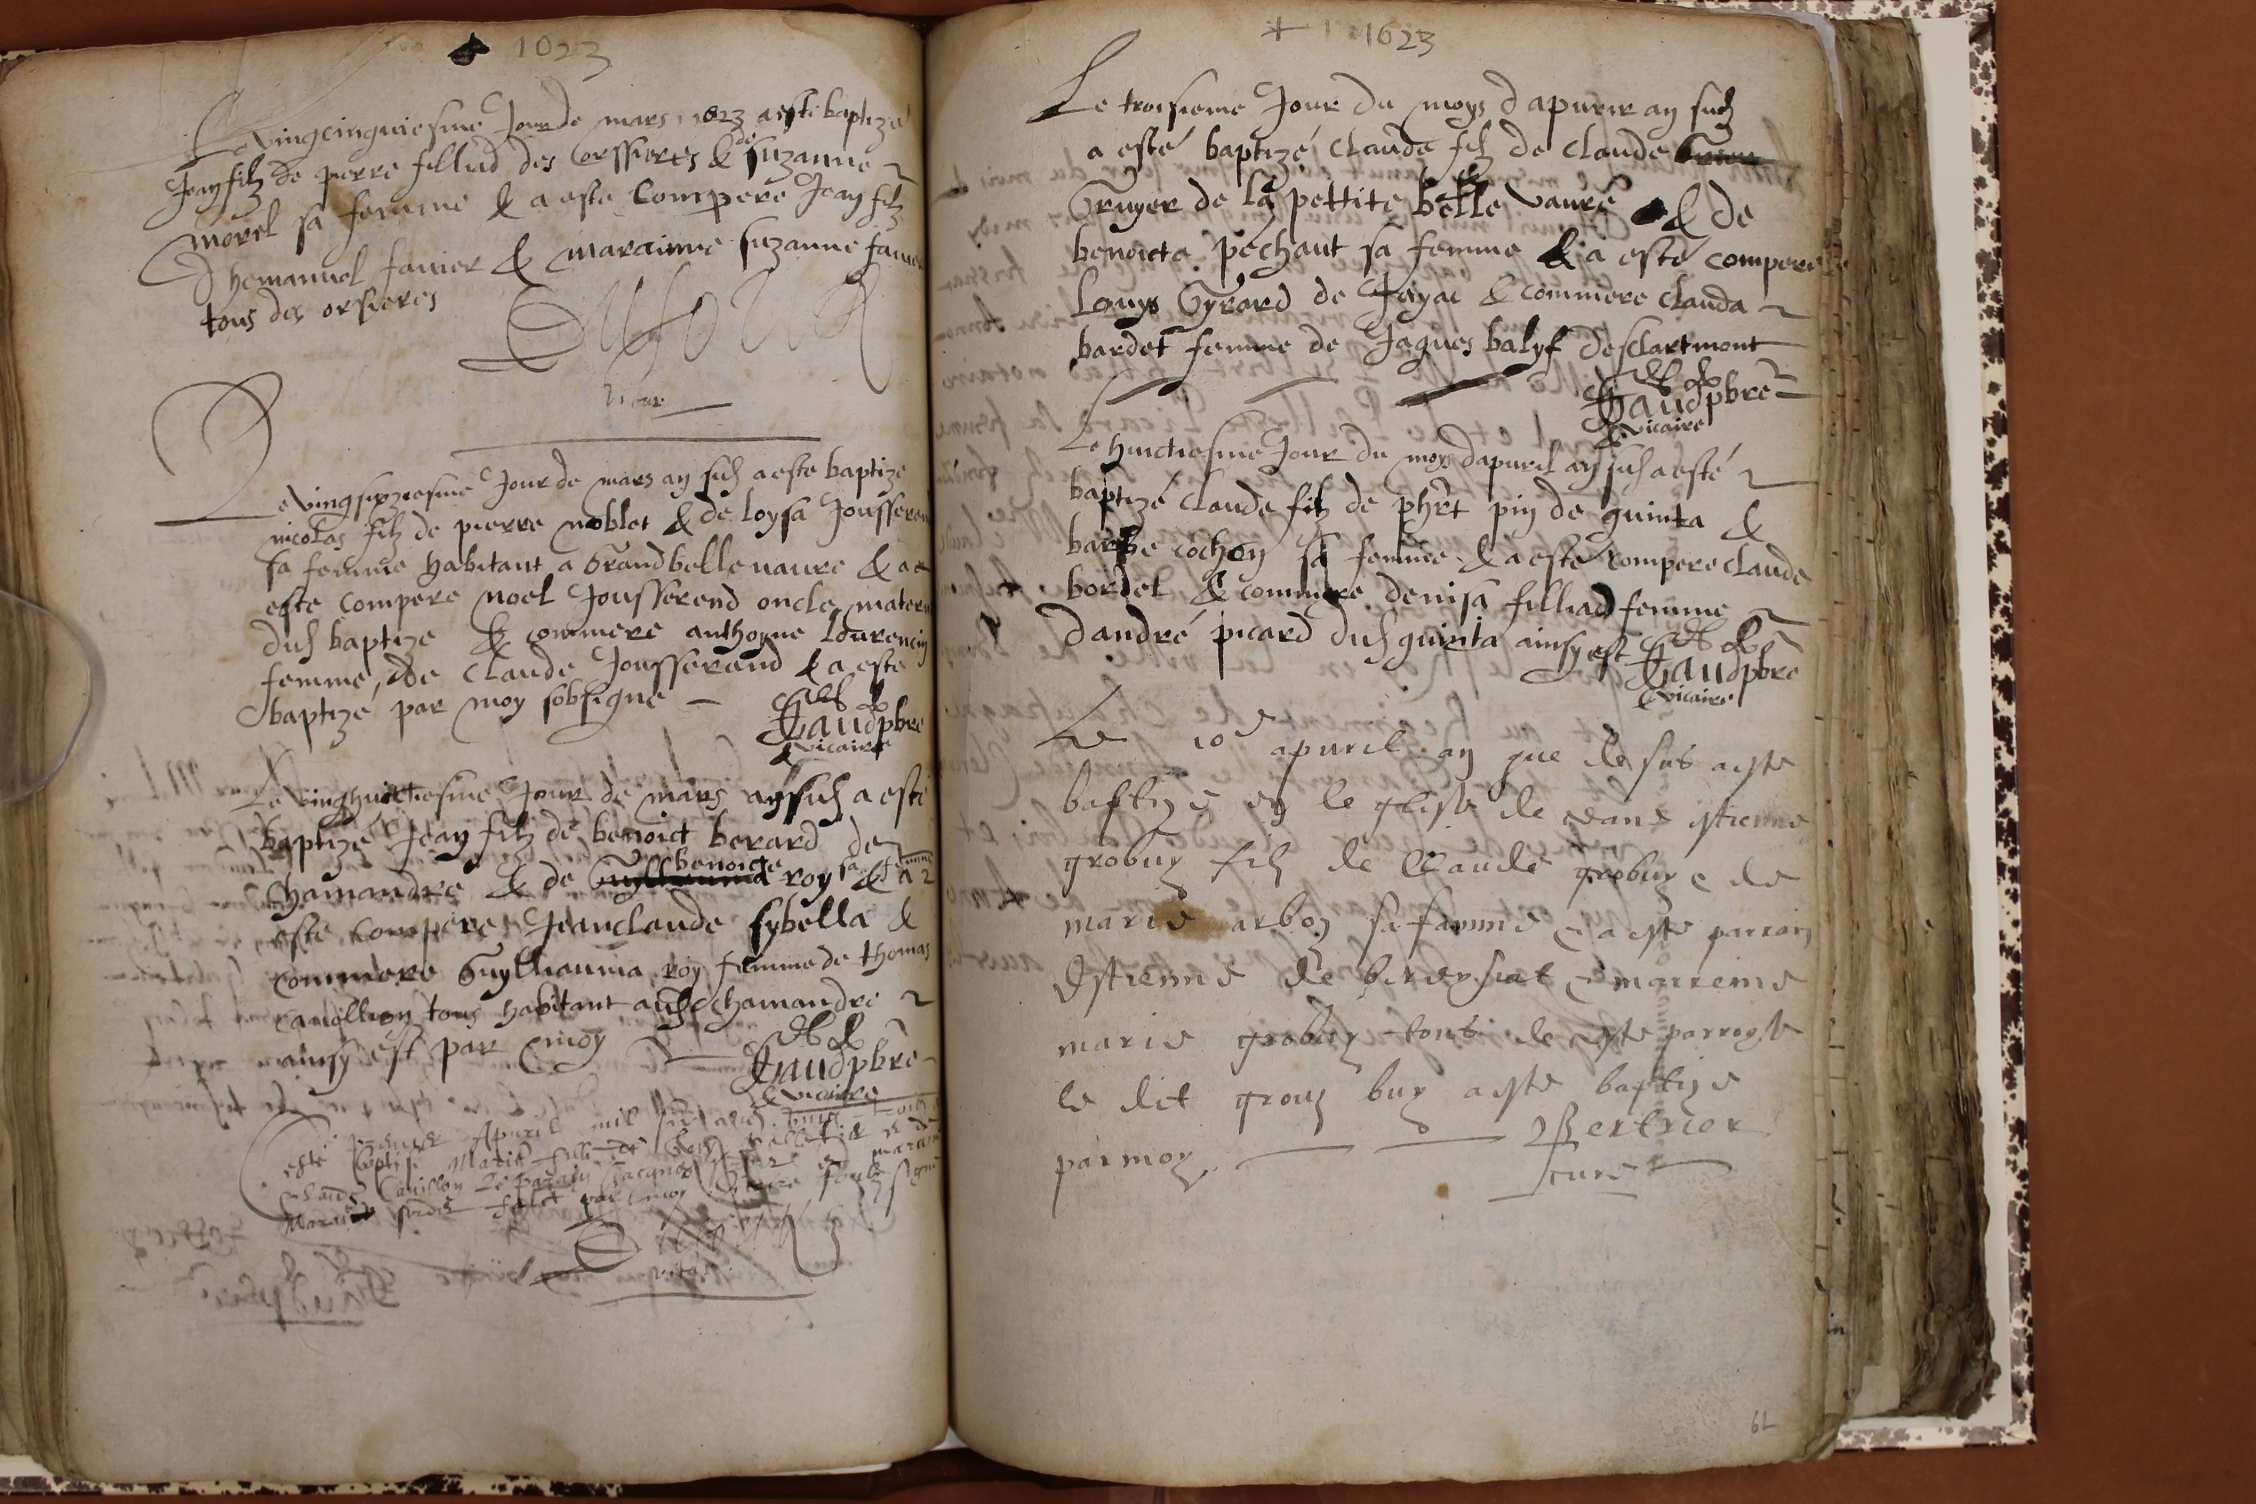 1623
Le vingcinquiesme Jour de mars 1623 a esté baptizé
Jean filz de pierre filliad des orssieres & de suzanne
morel sa femme & a esté compere Jean filz
d hemanuel favier & maraienne suzanne favier
tous des orsieres
vicaire
Le vingsixziesme Jour de mars an sus a este baptize
nicolas filz de pierre noblet & de loysa Jousserend
sa femme habitant a Grandbellevavre & a
este compere noel Jousserend oncle matern
dus baptize & commere anthoyne lourencin
femme de claude Jousserand & a este
baptizé par moy sobsigné
Gaud pbre
vicaire
Le vinghuictiesme Jour de mars an sus a esté
baptizé Jean filz de benoict berard de
chamandre & de benoicte roy sa femme & a
este compere Jeanclaude sybella &
commere Guylliauma roy femme de thomas
tous habitant audit chamandre
ainsy est par moy
Gaud pbre
vicaire
Apvril mil
esté baptisé Marie fille de
Claude Cavillon Le parain Jacques
par moy vicaire soubz signé
1623
Le troisieme Jour du moys d apvrir an sus
a esté baptizé claude filz de claude
Gruyer de la pettite belle vavre & de
benoicta pechaut sa femme & a esté compere
Louys Gyrard de Jayac & commere clauda
bardet femme de Jaques balyf desclartmont
Gaud pbre
vicaire
Le huictiesme Jour du moys dapvril an sus a esté
baptizé claude filz de phrt pin de quinta &
barbe cochon sa femme & a esté compere claude
bordet & commere denisa filliad femme
dandré picard dus quinta ainsy est
Gaud pbre
vicaire
Le 10e apvril an que desus a este
baptize en le glise de ceans estienne
grobuz filz de Claude grobuz e de
marie arbon sa famme e a este parrain
Estienne de bereysiat e marreine
marie grobuz tous de ceste parroysse
le dit grouz buz a este baptize
par moy
Bertrier
cure
62